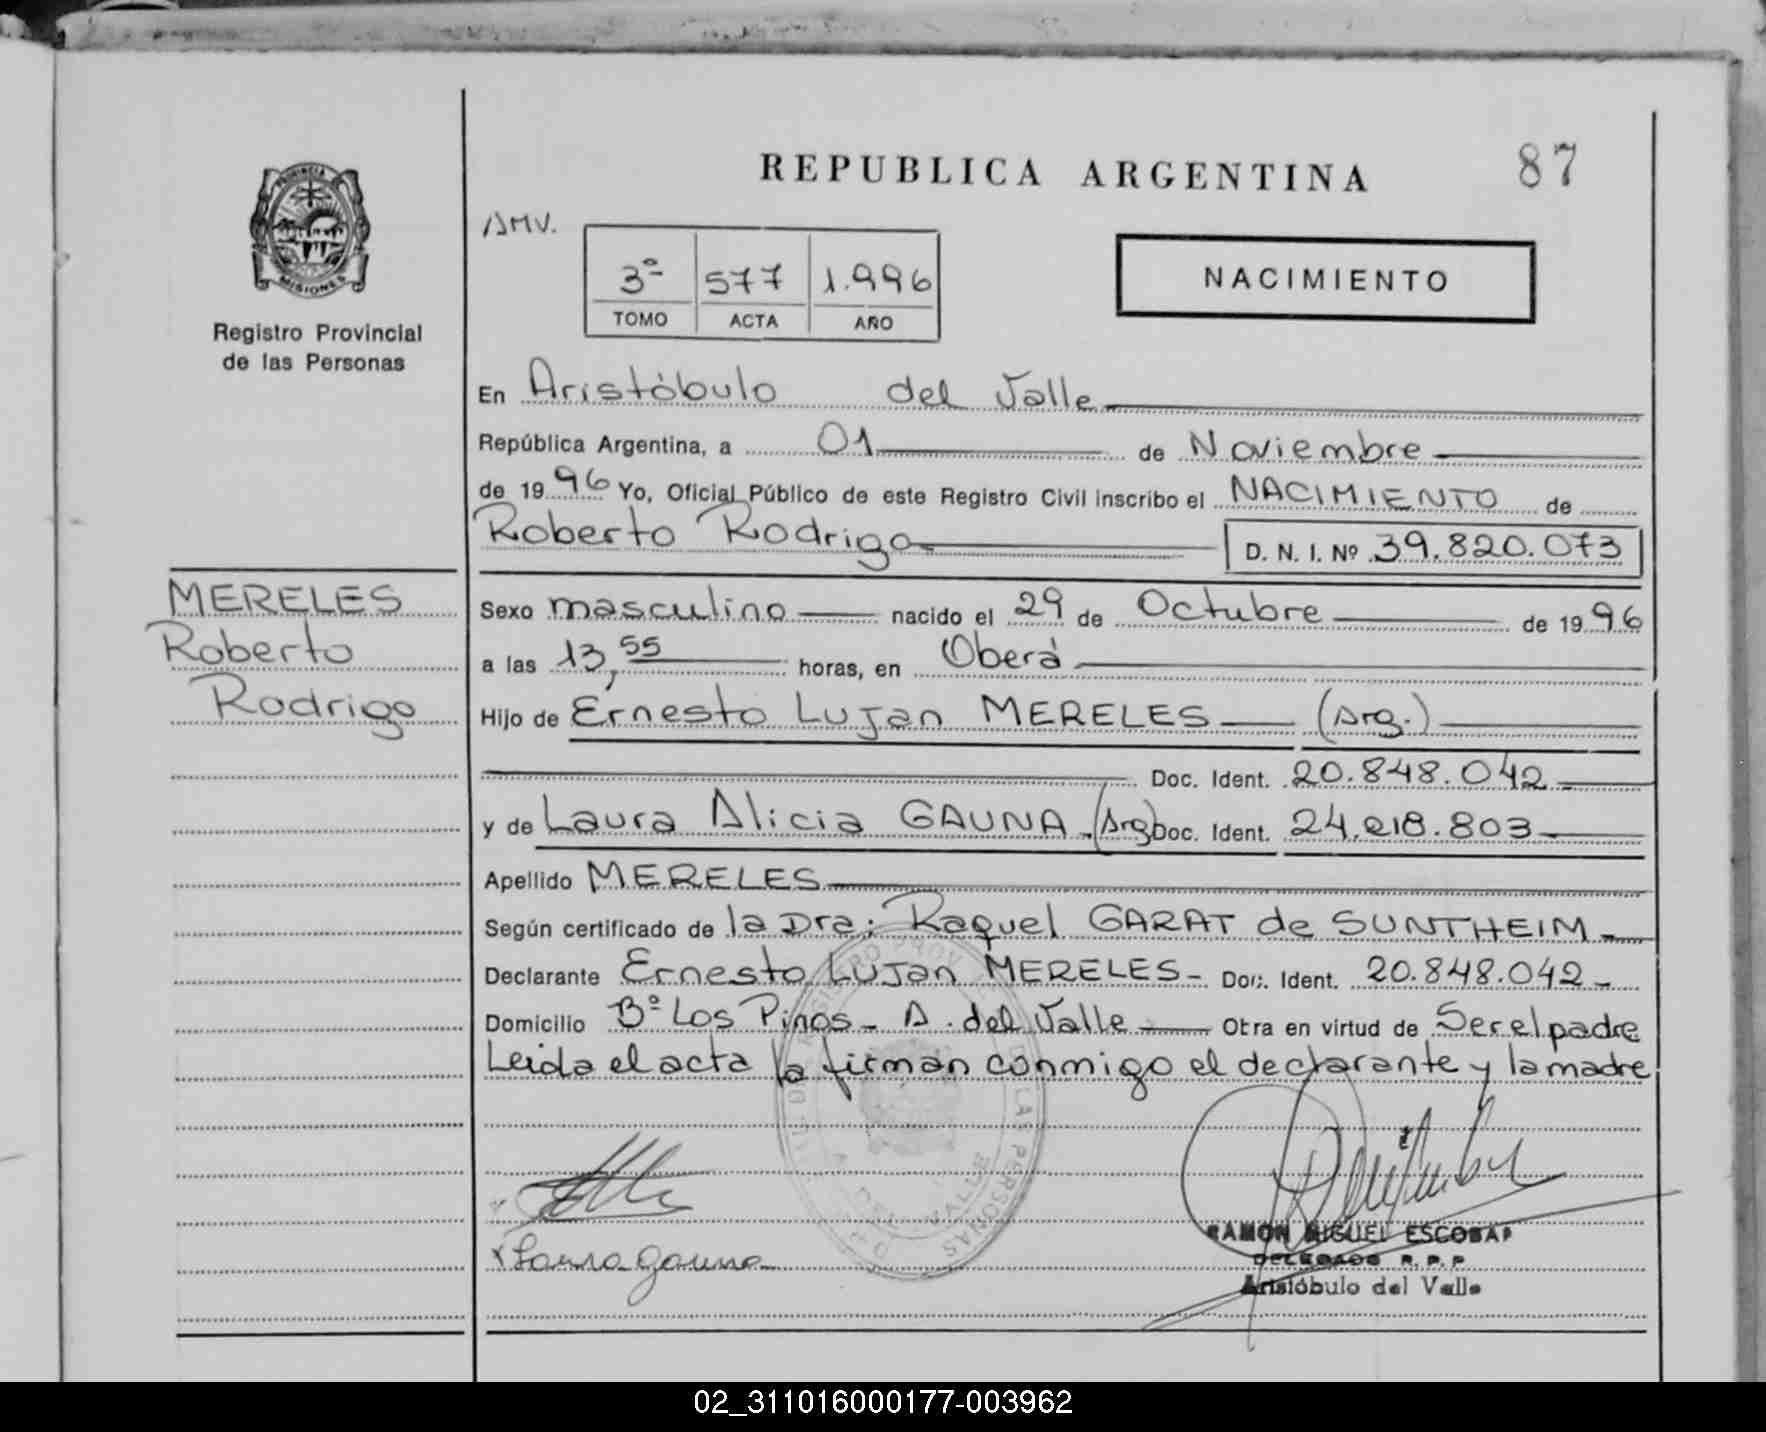 REPUBLICA ARGENTINA
87
PROVINCIA
MISIONES
Registro Provincial
de las Personas
AMV.
3º 577 1.996
TOMO ACTA AÑO
NACIMIENTO
En Aristóbulo del Valle
República Argentina, a 01 de Noviembre
de 1996 Yo, Oficial Público de este Registro Civil inscribo el NACIMIENTO de
Roberto Rodrigo D. N. I. Nº 39.820.073
MERELES
Roberto
Rodrigo
Sexo masculino nacido el 29 de Octubre de 1996
a las 13,55 horas, en Oberá
Hijo de Ernesto Lujan MERELES (Arg.)
Doc. Ident. 20.848.042
y de Laura Alicia GAUNA (Arg) Doc. Ident. 24.218.803
Apellido MERELES
Según certificado de la Dra: Raquel GARAT de SUNTHEIM
Declarante Ernesto Lujan MERELES Doc. Ident. 20.848.042
Domicilio Bº Los Pinos - A. del Valle Otra en virtud de Ser el padre
Leida el acta la firman conmigo el declarante y la madre
Laura Gauna
RAMON MIGUEL ESCOBAR
DELEGADO R. P. P.
Aristóbulo del Valle
02_311016000177-003962